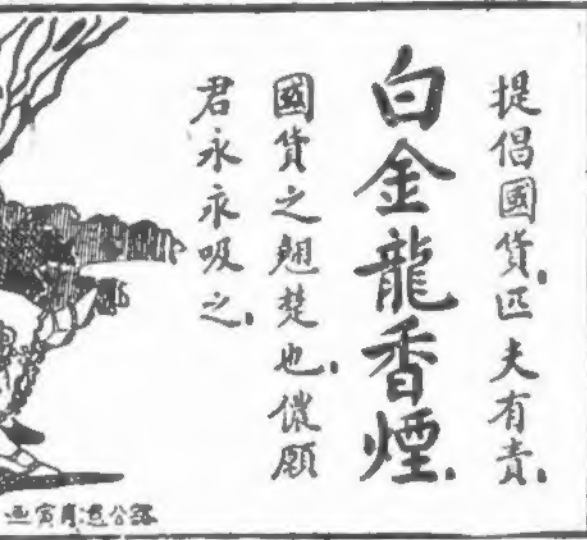 提倡國貨、匹夫有責、
白金龍香煙、
國貨之翹楚也、儂願
君永永吸之、